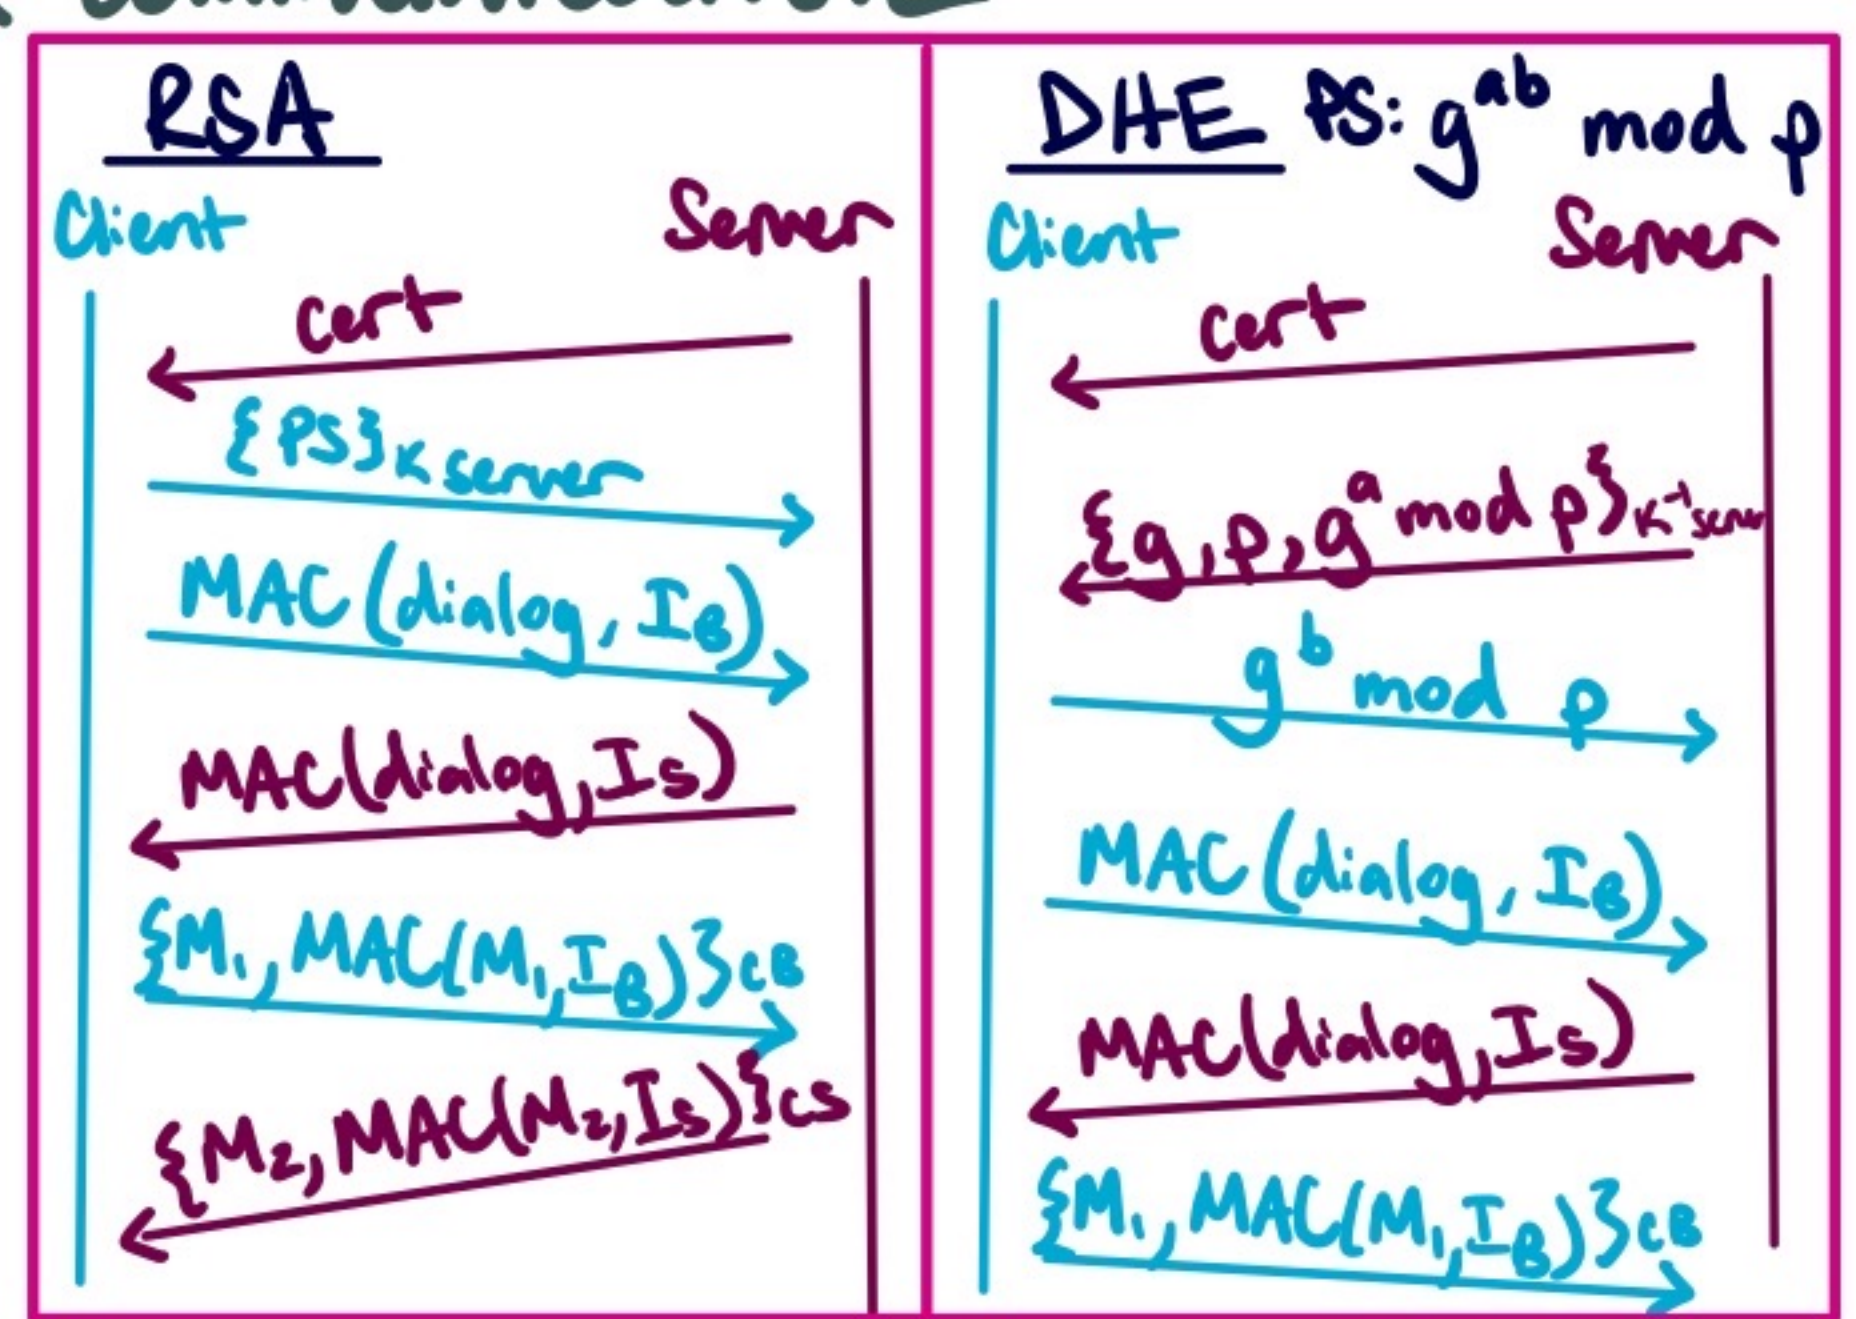 RSA
Client Server
cert
{PS}K server
MAC(dialog, IB)
MAC(dialog, Is)
{M1, MAC(M1, IB)}CB
{M2, MAC(M2, Is)}cs
DHE PS: g^ab mod p
Client Server
cert
{g, p, g^a mod p}K^-1 server
g^b mod p
MAC(dialog, IB)
MAC(dialog, Is)
{M1, MAC(M1, IB)}CB